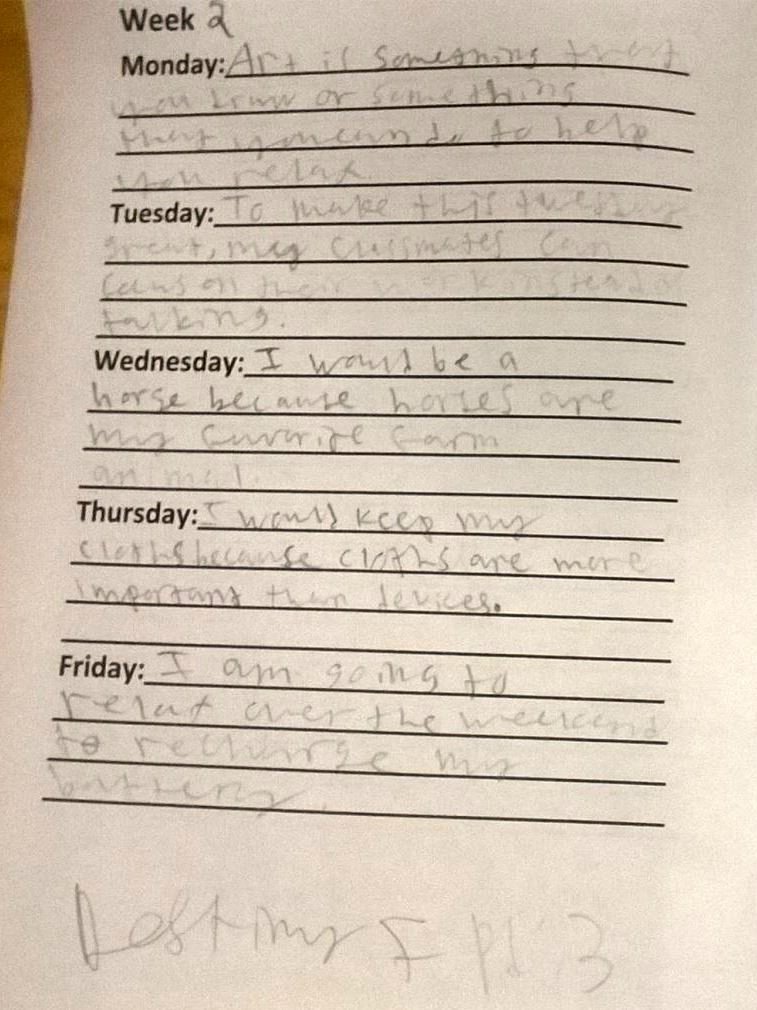 Week 2
Monday: Art is something that
you draw or something
that you can do to help
you relax.
Tuesday: To make this tuesday
great, my classmates can
focus on their work instead of
talking.
Wednesday: I would be a
horse because horses are
my favorite farm
animal.
Thursday: I would keep my
cloths because cloths are more
important than devices.
Friday: I am going to
relax over the weekend
to recharge my
battery.
Destiny F pd 3